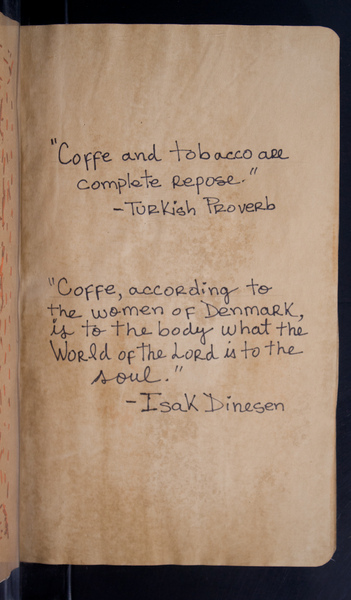 "Coffe and tobacco are
complete repose."
-Turkish Proverb
"Coffe, according to
the women of Denmark,
is to the body what the
World of the Lord is to the
soul."
-Isak Dinesen